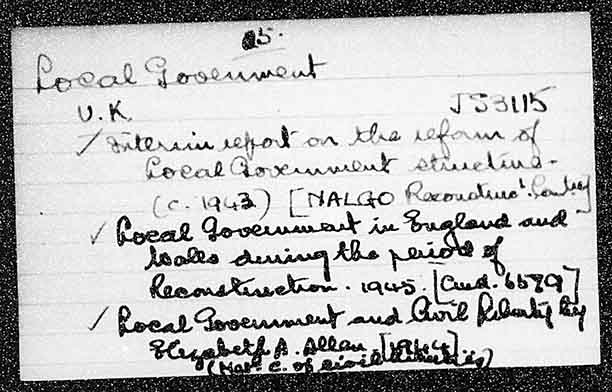 5.
Local Government
U.K. JS3115
✓ Interim report on the reform of
Local Government structure.
(c. 1943) [NALGO Reconstruct.
✓ Local Government in England and
Wales during the period of
Reconstruction. 1945. [Cmd. 6579]
✓ Local Government and Civil Liberty by
Elizabeth A. Allen. [1944]
(Nat. C. of civil liberties)